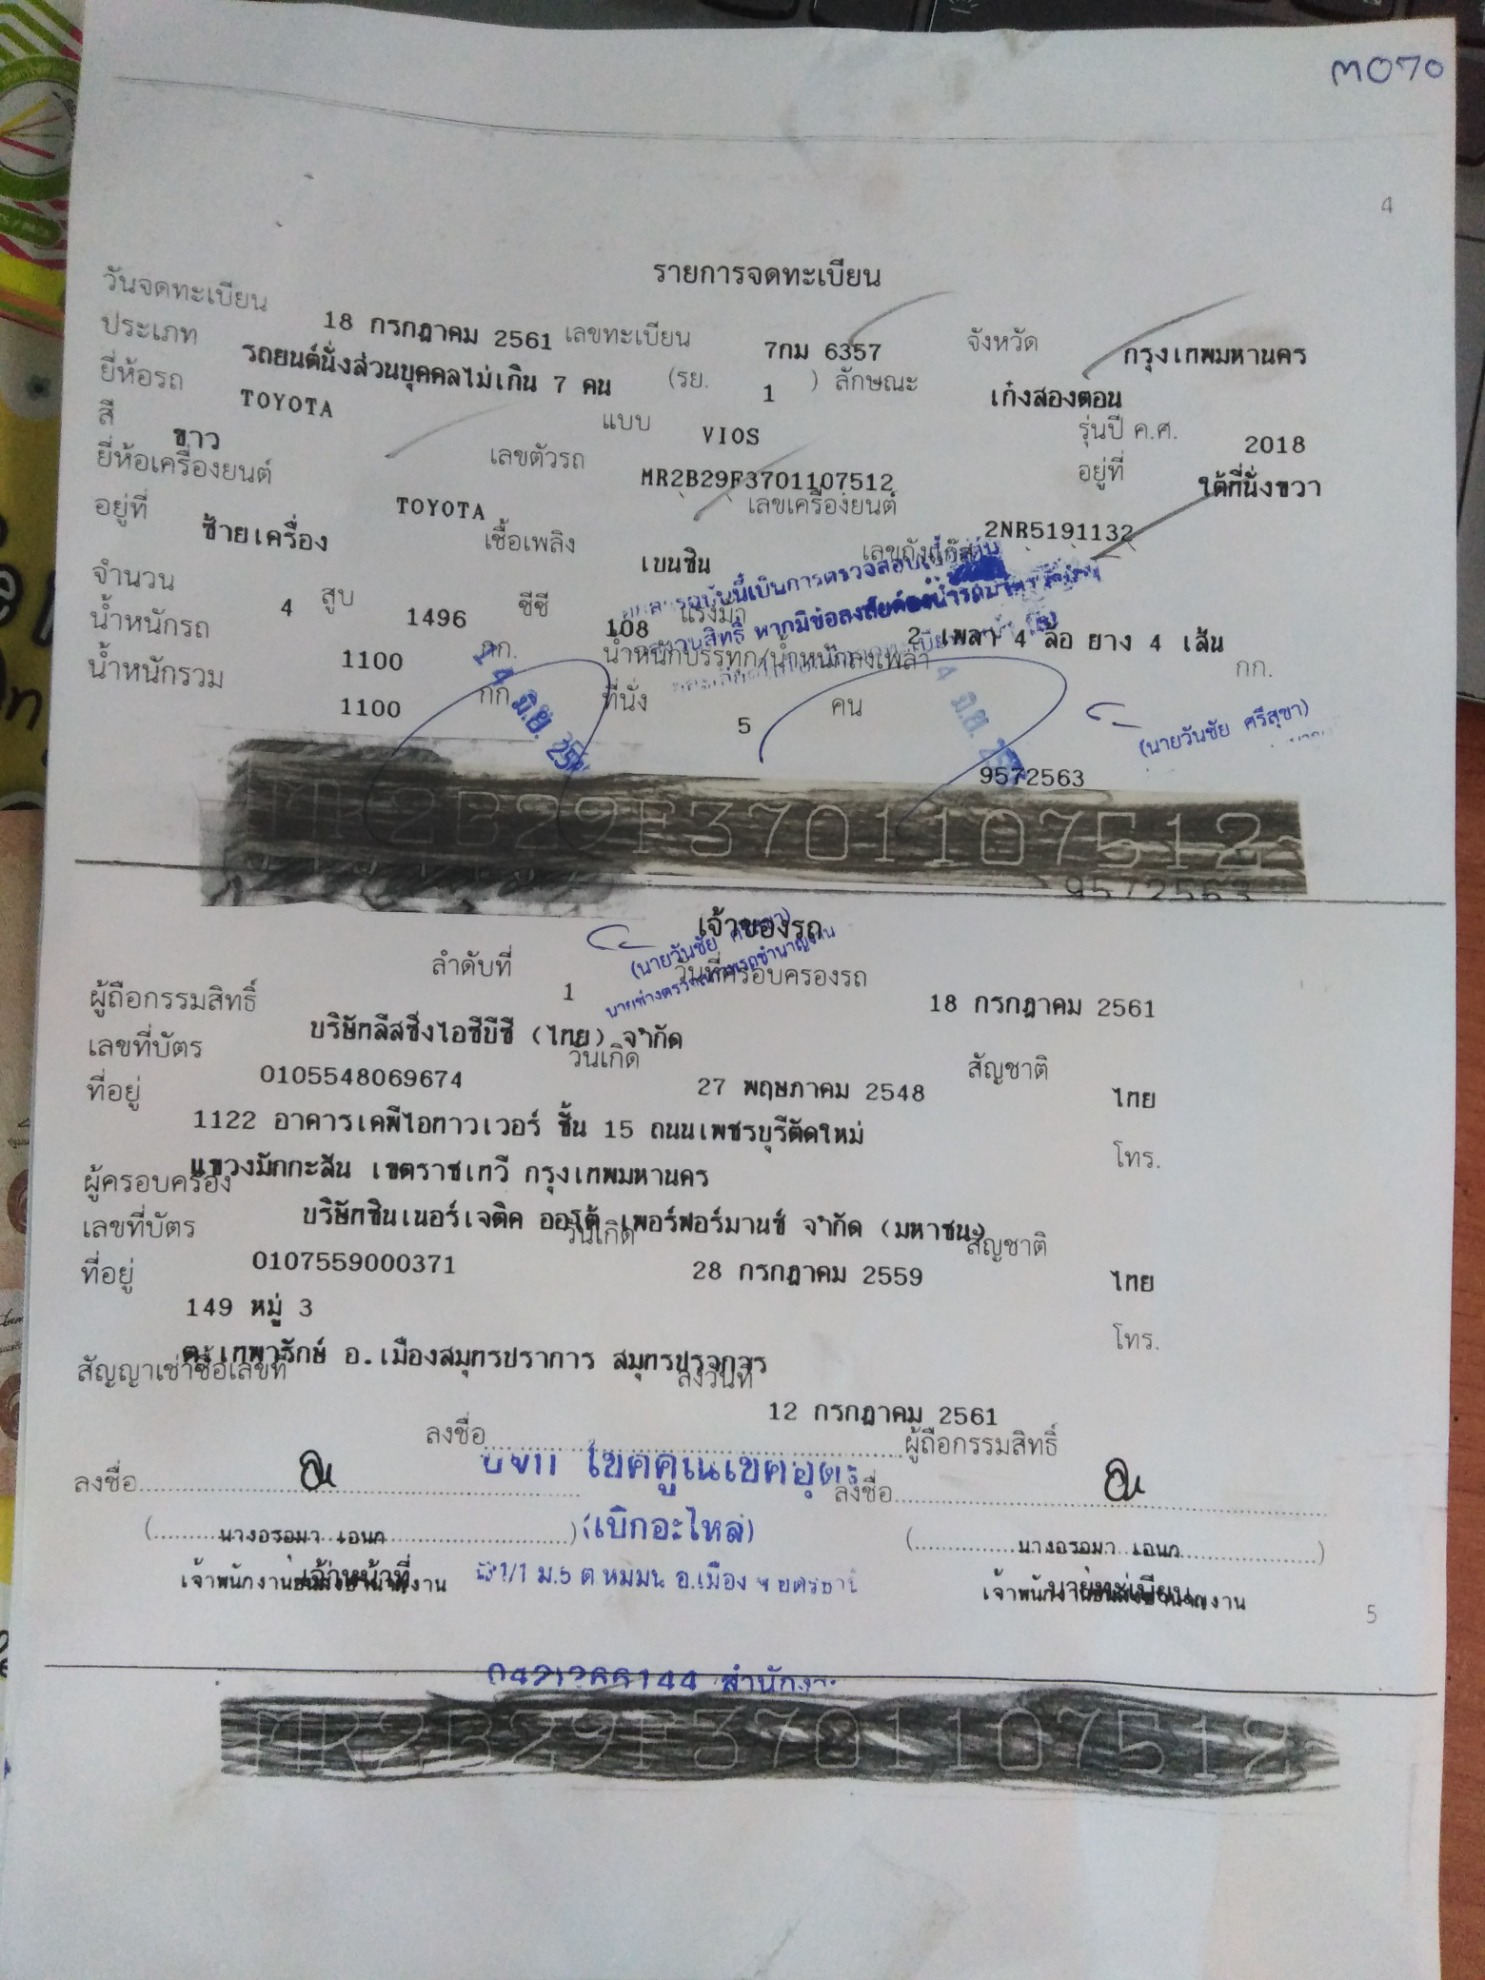 M070
4
รายการจดทะเบียน
วันจดทะเบียน 18 กรกฎาคม 2561 เลขทะเบียน 7กม 6357 จังหวัด กรุงเทพมหานคร
ประเภท รถยนต์นั่งส่วนบุคคลไม่เกิน 7 คน (รย. 1 ) ลักษณะ เก๋งสองตอน
ยี่ห้อรถ TOYOTA แบบ VIOS รุ่นปี ค.ศ. 2018
สี ขาว เลขตัวรถ MR2B29F3701107512 อยู่ที่ ใต้ที่นั่งขวา
ยี่ห้อเครื่องยนต์ TOYOTA เลขเครื่องยนต์ 2NR5191132
อยู่ที่ ซ้ายเครื่อง เชื้อเพลิง เบนซิน เลขถังแก๊ส
จำนวน 4 สูบ 1496 ซีซี 108 แรงม้า 2 เพลา 4 ล้อ ยาง 4 เส้น
น้ำหนักรถ 1100 กก. น้ำหนักบรรทุก/น้ำหนักลงเพลา กก.
น้ำหนักรวม 1100 กก. ที่นั่ง 5 คน
หากมีข้อสงสัย
(นายวันชัย ศรีสุขา)
9572563
MR2B29F3701107512
9572563
เจ้าของรถ
(นายวันชัย
ลำดับที่ 1 วันที่ครอบครองรถ 18 กรกฎาคม 2561
ผู้ถือกรรมสิทธิ์ บริษัทลีสซิ่งไอซีบีซี (ไทย) จำกัด
เลขที่บัตร 0105548069674 วันเกิด 27 พฤษภาคม 2548 สัญชาติ ไทย
ที่อยู่ 1122 อาคารเคพีไอทาวเวอร์ ชั้น 15 ถนนเพชรบุรีตัดใหม่
แขวงมักกะสัน เขตราชเทวี กรุงเทพมหานคร โทร.
ผู้ครอบครอง บริษัทซินเนอร์เจติค ออโต้ เพอร์ฟอร์มานซ์ จำกัด (มหาชน)
เลขที่บัตร 0107559000371 วันเกิด 28 กรกฎาคม 2559 สัญชาติ ไทย
ที่อยู่ 149 หมู่ 3
ต.เทพารักษ์ อ.เมืองสมุทรปราการ สมุทรปราการ โทร.
สัญญาเช่าซื้อเลขที่ ลงวันที่ 12 กรกฎาคม 2561
ลงชื่อ ผู้ถือกรรมสิทธิ์
โชคคูณโชคอุดร
ลงชื่อ ลงชื่อ
(เบิกอะไหล่)
(นางอรอุมา เอนก) (นางอรอุมา เอนก)
เจ้าหน้าที่ นายทะเบียน
1/1 ม.5 ต.หมูม่น อ.เมือง จ.อุดรธานี
5
สำนักงาน
MR2B29F3701107512